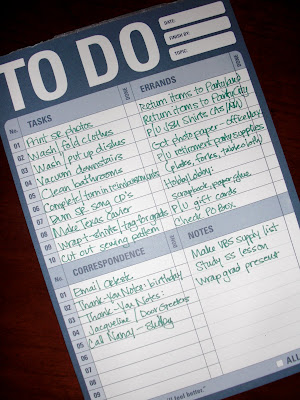 TO DO
DATE:
FINISH BY:
TOPIC:
No. TASKS DONE
01 Print SE photos
02 Wash / fold clothes
03 Wash / put up dishes
04 Vacuum downstairs
05 Clean bathrooms
06 Complete / turn in reimbursements
07 Burn SF song CDs
08 Make Texas Caviar
09 Wrap t-shirts / tag for grads
10 Cut out sewing pattern
ERRANDS DONE
Return items to Partyland
Return items to Party City
P/U LSU Shirts
Get photo paper - office
P/U retirement party supplies
(plates, forks, tablecloth)
Hobby Lobby:
scrapbook, paper, glue
P/U gift cards
Check PO Box
No. CORRESPONDENCE DONE
01 Email Celeste
02 Thank-You Notes: birthday
03 Thank-You Notes:
04 Jacqueline / Door Greeters
05 Call Nancy -
06
07
08
09
NOTES
Make VBS supply list
Study SS lesson
Wrap grad present
ALL
feel better."